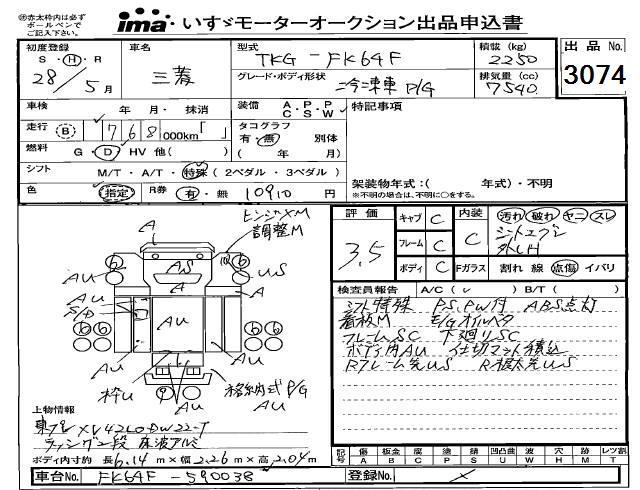 ※赤太枠内は必ず
ボールペンで
ご記入下さい。
ima いすゞモーターオークション出品申込書
初度登録
S・H・R
28/5月
車名
三菱
型式
TKG-FK64F
グレード・ボディ形状
冷凍車 P/G
積載 (kg)
2250
排気量 (cc)
7540
出品 No.
3074
車検
年 月・ 抹消
装備 A.P.P
C S W
特記事項
走行 B 768,000km「 」
タコグラフ
有・無 別体
( 年 月)
燃料
G・D・HV 他( )
シフト
M/T・A/T・特殊 (2ペダル・3ペダル)
色
指定
R券 有・無 10910 円
架装物年式:( 年式)・不明
※不明の場合は、不明に○をする。
ヒンジメM
調整M
A
AS
A
AU
US
A
AU
AU
AU
AU
枠U
AU
格納式P/G
AU
評価
3.5
キャブ C
フレーム C
ボディ C
内装 C
Fガラス
汚れ 破れ ヤニ スレ
割れ 線 点傷 イバリ
検査員報告 A/C ( レ ) B/T ( )
シフト特殊 P.S,P.W付 ABS点灯
看板M E/Gオイルベタ
フレームSC 下廻りSC
ボディ内AU 仕切マット積込
Rフレーム先US R根太先US
上物情報
東プレ XV42LO-DW22-T
ラッシング2段 床波アルミ
ボディ内寸約 長6.14m×幅2.26m×高2.04m
記号 傷A 板金B 腐C 塗P 錆S 凹凸曲U 波W 穴H メM レツ割T
車台No. FK64F-590038
登録No.